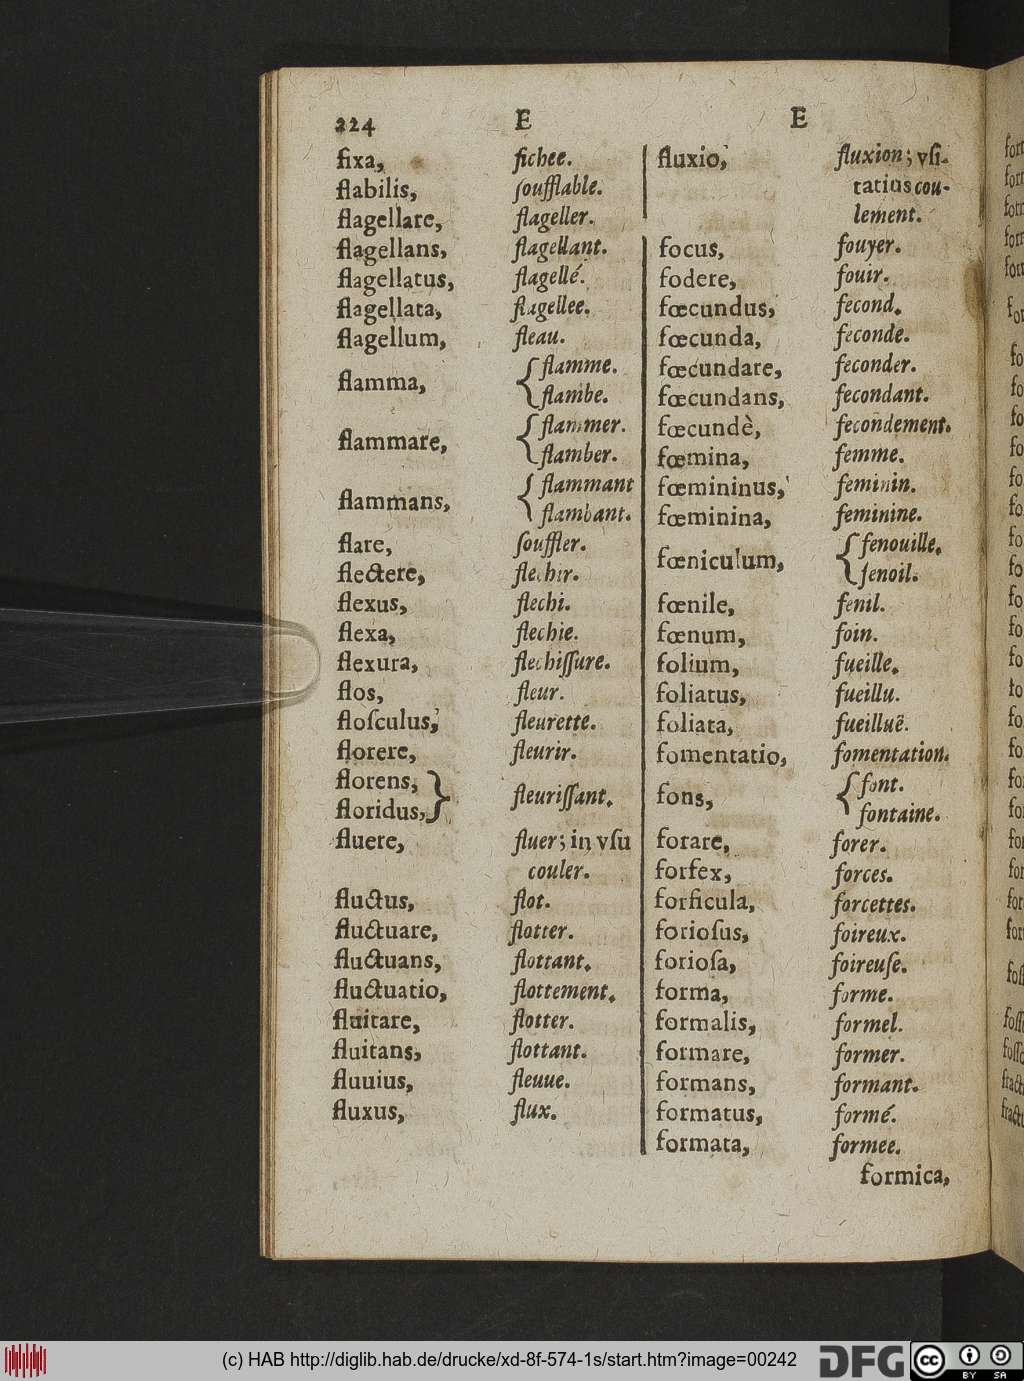 224 E E
fixa, fichee.
flabilis, ſoufflable.
flagellare, flageller.
flagellans, flagellant.
flagellatus, flagellé.
flagellata, flagellee.
flagellum, fleau.
flamma, { flamme.
flambe.
flammare, { flammer.
flamber.
flammans, { flammant
flambant.
flare, ſouffler.
flectere, flechir.
flexus, flechi.
flexa, flechie.
flexura, flechiſſure.
flos, fleur.
floſculus, fleurette.
florere, fleurir.
florens,
floridus, } fleuriſſant.
fluere, fluer; in vſu
couler.
fluctus, flot.
fluctuare, flotter.
fluctuans, flottant.
fluctuatio, flottement.
fluitare, flotter.
fluitans, flottant.
fluuius, fleuue.
fluxus, flux.
fluxio, fluxion; vſi-
tatius cou-
lement.
focus, fouyer.
fodere, fouir.
fœcundus, fecond.
fœcunda, feconde.
fœcundare, feconder.
fœcundans, fecondant.
fœcundè, fecondement.
fœmina, femme.
fœmininus, feminin.
fœminina, feminine.
fœniculum, { fenouille.
fenoil.
fœnile, fenil.
fœnum, foin.
folium, fueille.
foliatus, fueillu.
foliata, fueilluë.
fomentatio, fomentation.
fons, { font.
fontaine.
forare, forer.
forfex, forces.
forficula, forcettes.
forioſus, foireux.
forioſa, foireuſe.
forma, forme.
formalis, formel.
formare, former.
formans, formant.
formatus, formé.
formata, formee.
formica,
(c) HAB http://diglib.hab.de/drucke/xd-8f-574-1s/start.htm?image=00242
DFG
cc BY SA